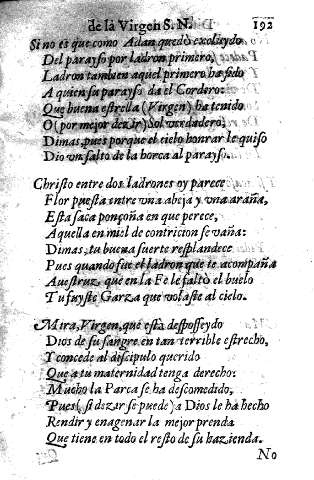 de la Virgen S. N. 192
Si no es que como Adan quedò excluydo
Del parayso por ladron primero,
Ladron tambien aquel primero ha sido
A quien su parayso da el Cordero:
Que buena estrella (Virgen) ha tenido
O (por mejor dezir) Sol verdadero,
Dimas, pues porque el cielo honrar le quiso
Dio vn salto de la horca al parayso.
Christo entre dos ladrones oy parece
Flor puesta entre vna abeja y vna araña,
Esta saca ponçoña en que perece,
Aquella en miel de contricion se vaña:
Dimas, tu buena suerte resplandece
Pues quando fue el ladron que te acompaña
Auestruz, que en la Fe le faltò el buelo
Tu fuyste Garza que volaste al cielo.
Mira, Virgen, que està desposseydo
Dios de su sangre en tan terrible estrecho,
Y concede al discipulo querido
Que a tu maternidad tenga derecho:
Mucho la Parca se ha descomedido,
Pues (si dezir se puede) a Dios le ha hecho
Rendir y enagenar la mejor prenda
Que tiene en todo el resto de su hazienda.
No